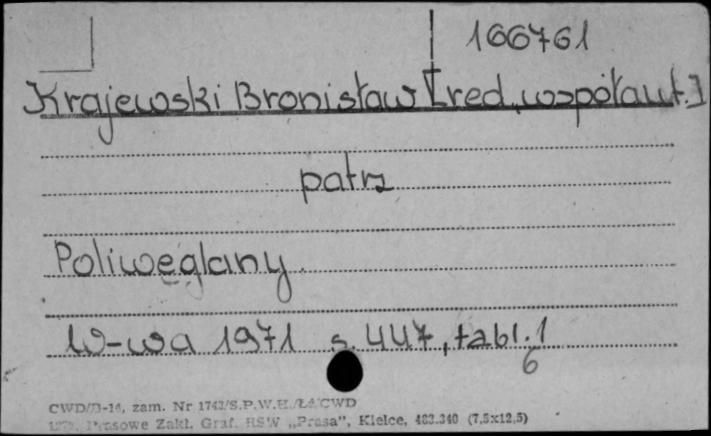 166761
Krajewski Bronisław [red., współaut.]
patrz
Poliwęglany.
W-wa 1971 s. 447, tabl. 1
6
CWD/D-14, zam. Nr 1742/S.P.W.H./Ł4/CWD
Prasowe Zakł. Graf. RSW „Prasa”, Kielce, 483.340 (7,5x12,5)